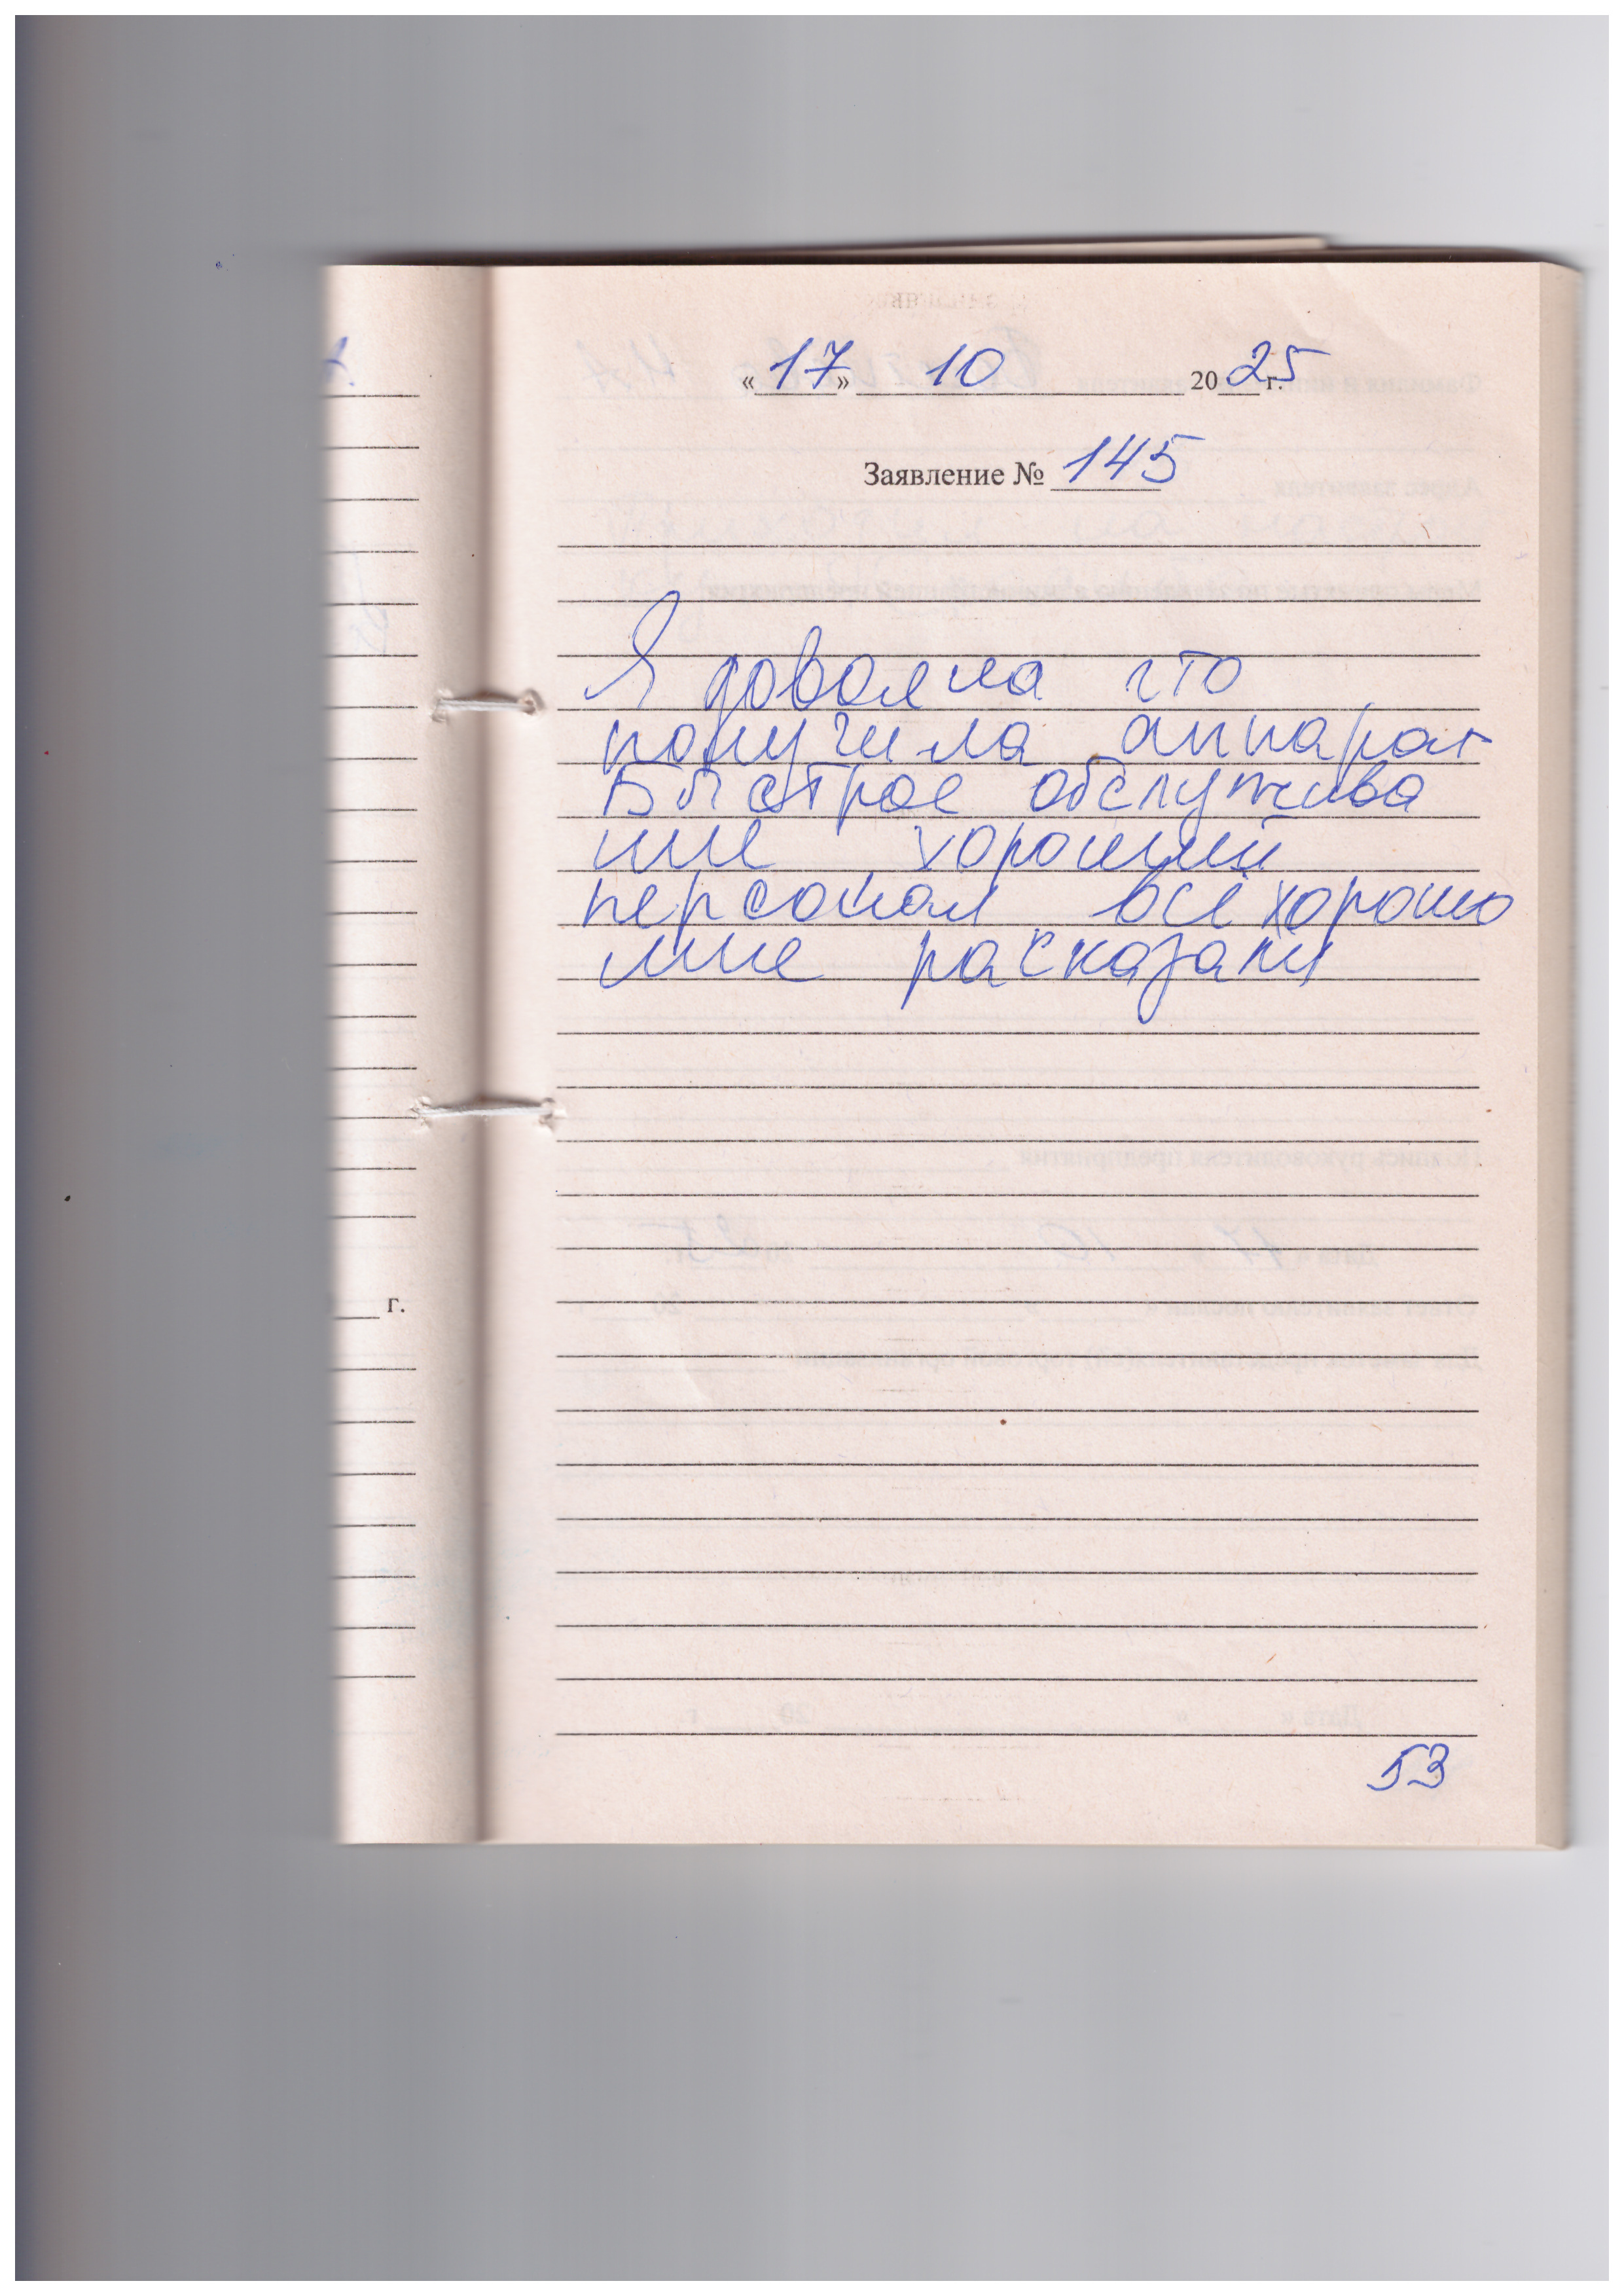 «17» 10 2025г.
Заявление № 145
Я доволна что
получила аппарат
Быстрое обслужива
ние хороший
персонал всё хорошо
мне расказали
г.
53